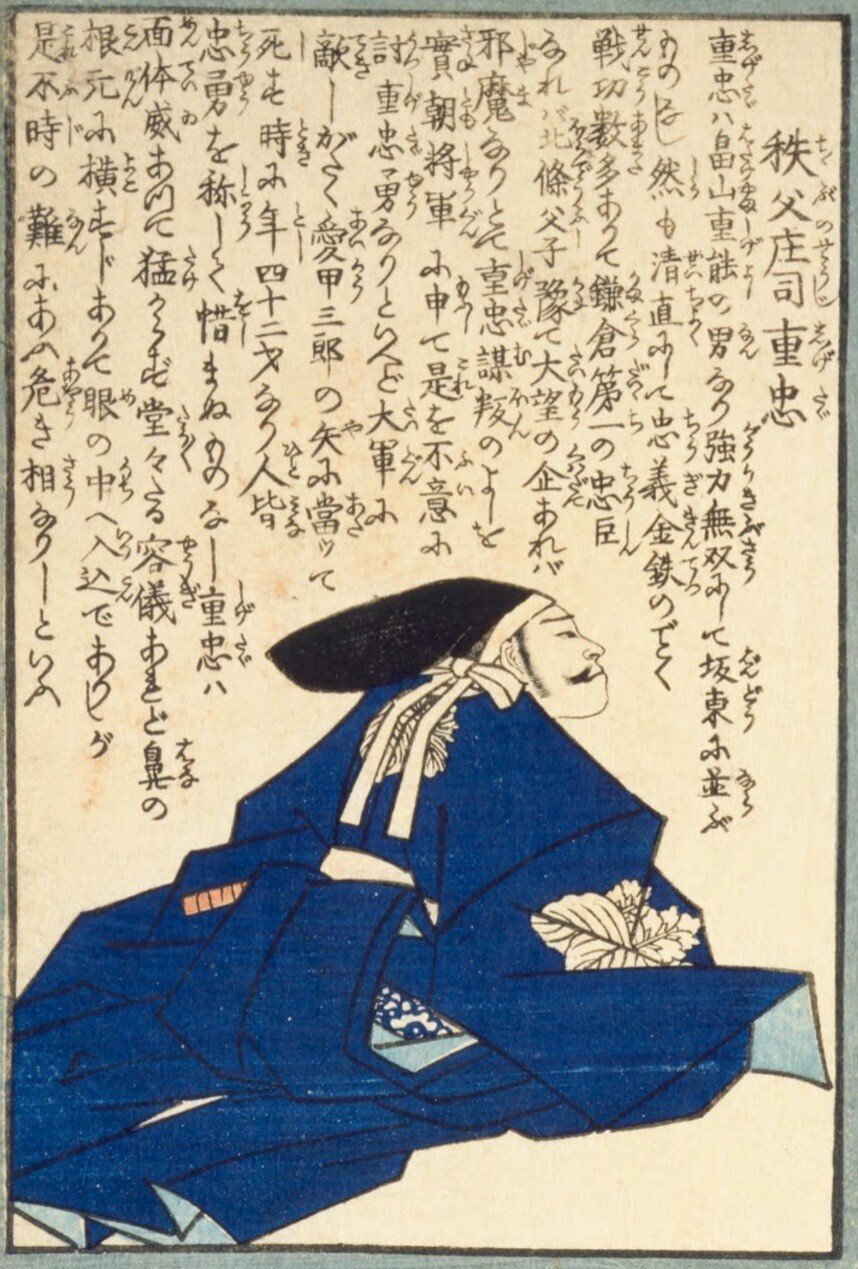 秩父庄司重忠
重忠ハ畠山重能の男なり強力無双にして坂東に並ぶ
ものなし然も清直にして忠義金鉄のごとく
戦功数多ありて鎌倉第一の忠臣
なれバ北條父子豫て大望の企あれバ
邪魔なりとて重忠謀叛のよしを
實朝将軍に申て是を不意に
討重忠勇なりといへど大軍に
敵しがたく愛甲三郎の矢に當ッて
死す時に年四十二才なり人皆
忠勇を称して惜まぬものなし重忠ハ
面体威あつて猛からず堂々たる容儀あれど鼻の
根元に横すじありて眼の中へ入込でありしが
是不時の難にあふ危き相なりしといふ